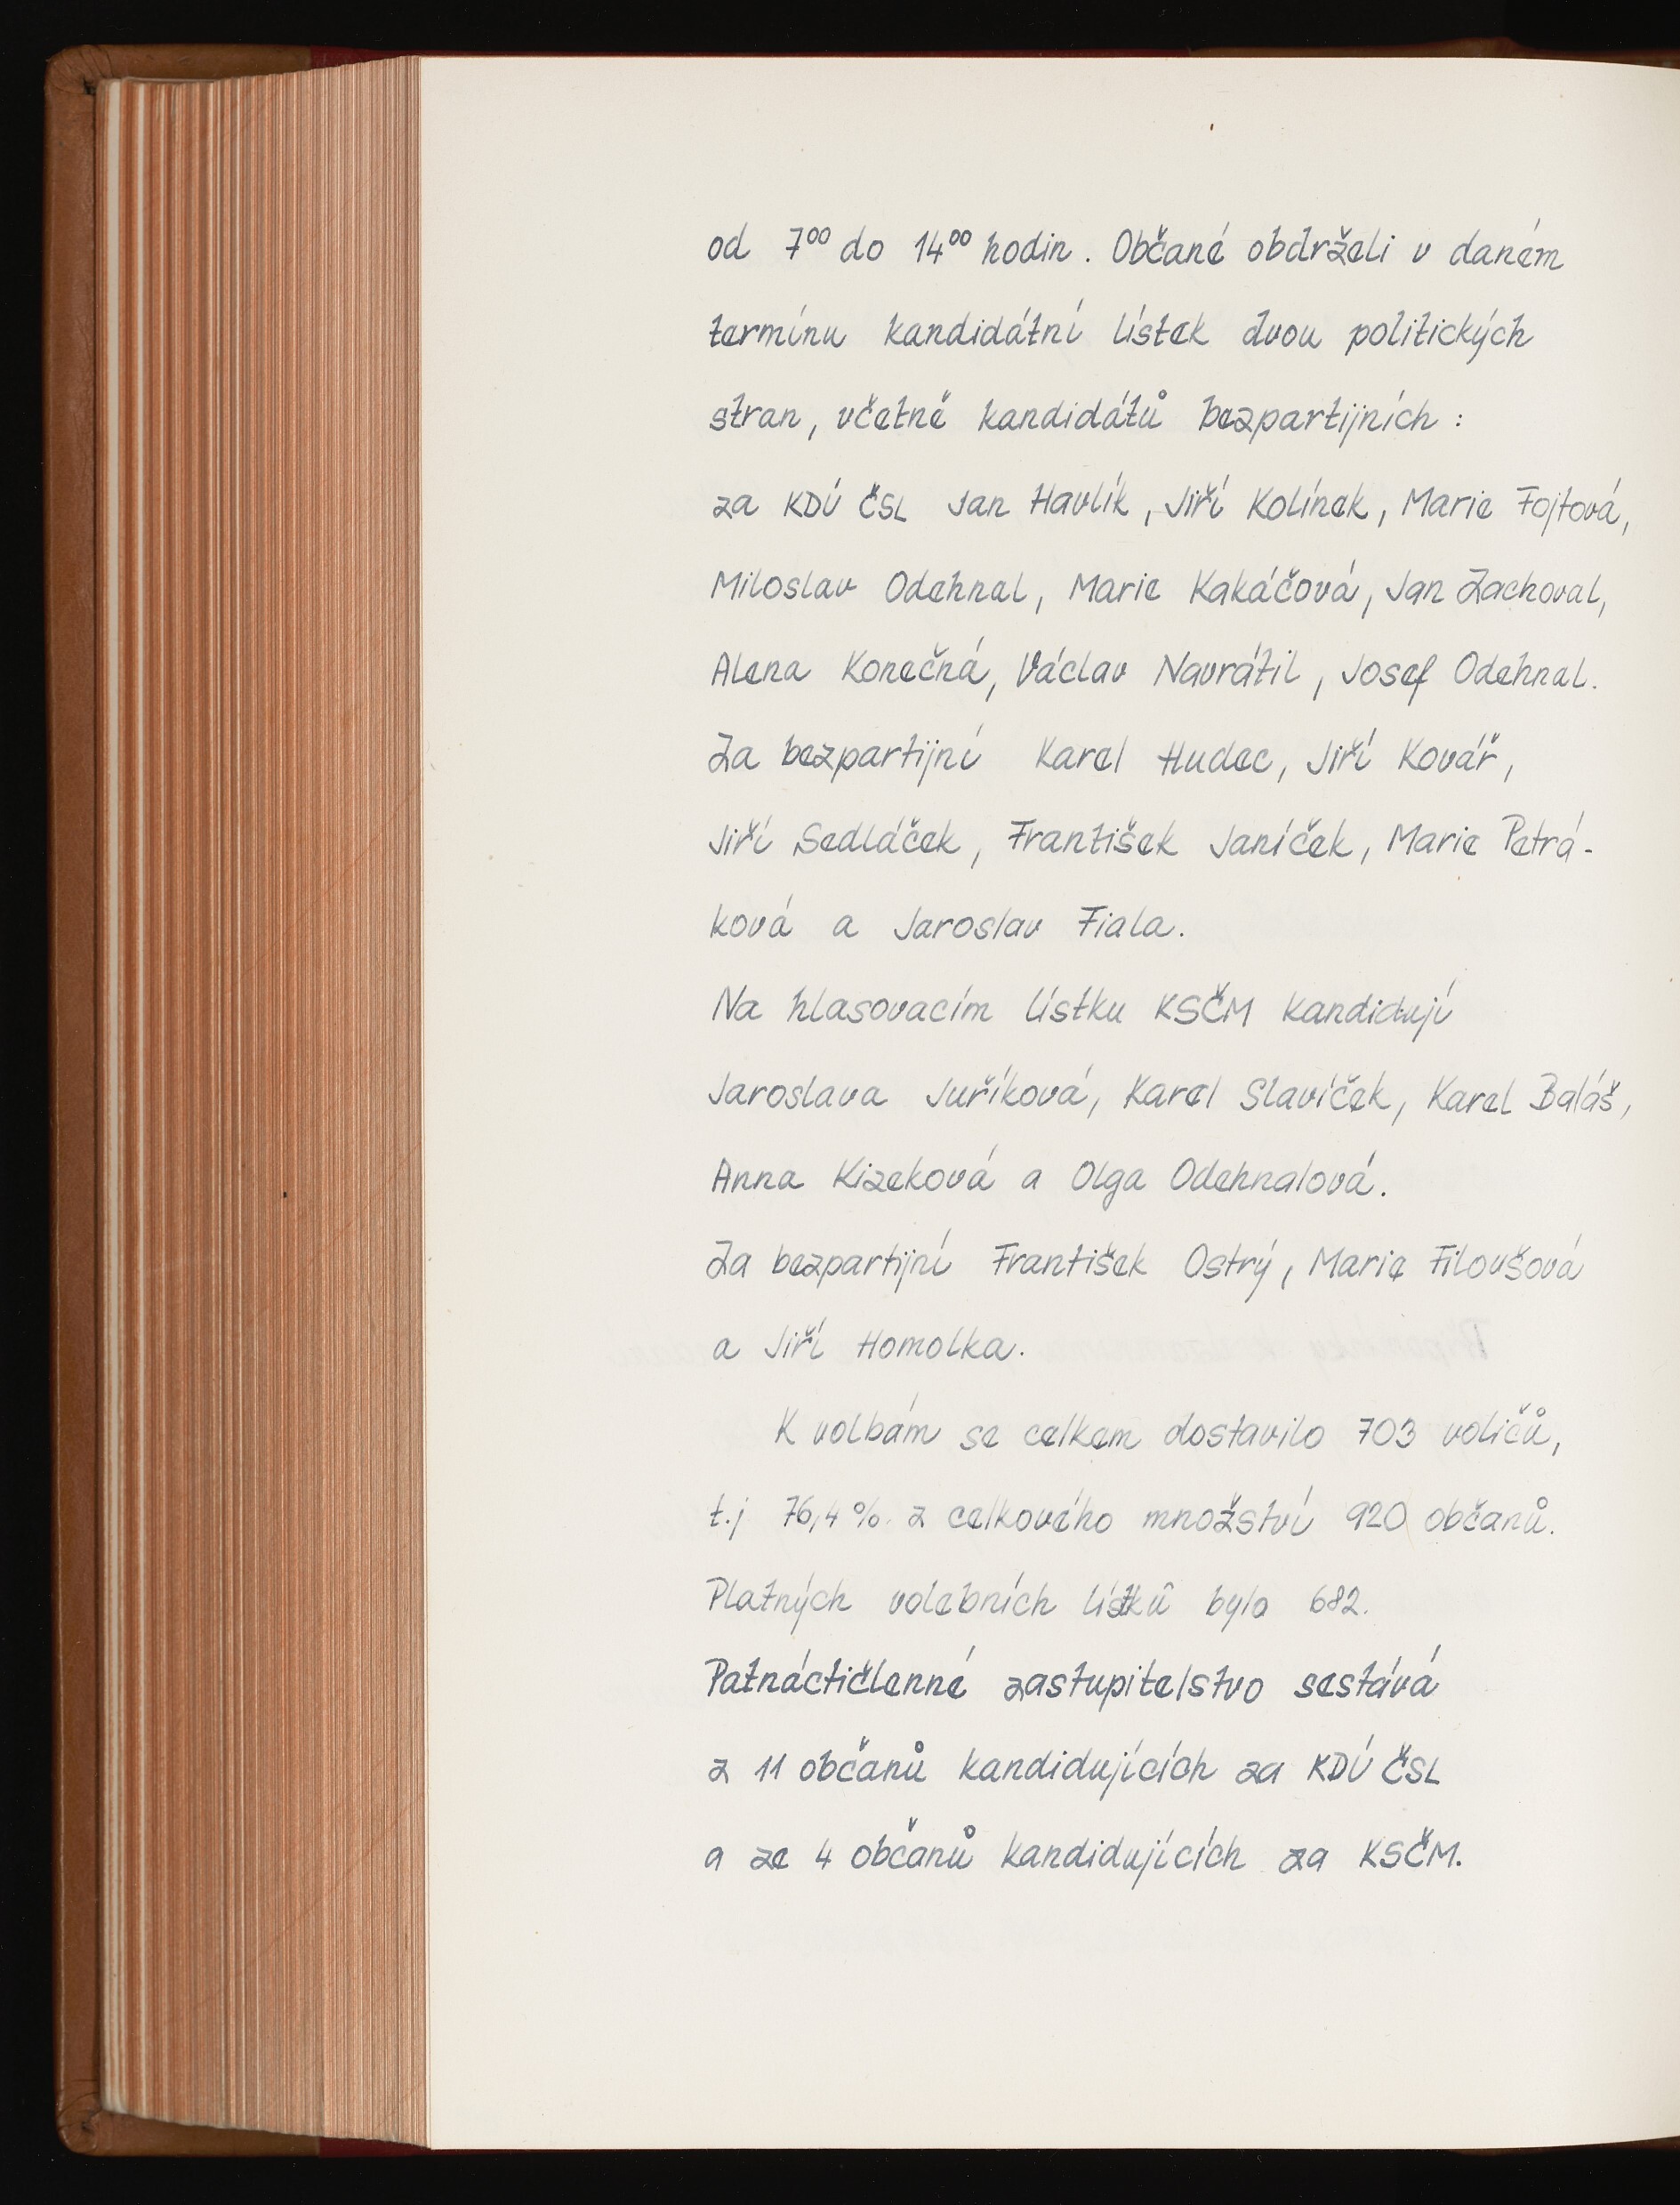 od 7⁰⁰ do 14⁰⁰ hodin. Občané obdrželi v daném
termínu kandidátní lístek dvou politických
stran, včetně kandidátů bezpartijních:
za KDÚ ČSL Jan Havlík, Jiří Kolínek, Marie Fojtová,
Miloslav Odehnal, Marie Kakáčová, Jan Zachoval,
Alena Konečná, Václav Navrátil, Josef Odehnal.
Za bezpartijní Karel Hudec, Jiří Kovář,
Jiří Sedláček, František Janíček, Marie Petrá-
ková a Jaroslav Fiala.
Na hlasovacím lístku KSČM kandidují
Jaroslava Juříková, Karel Slavíček, Karel Baláš,
Anna Kizeková a Olga Odehnalová.
Za bezpartijní František Ostrý, Marie Filoušová
a Jiří Homolka.
K volbám se celkem dostavilo 703 voličů,
t.j 76,4%. z celkového množství 920 občanů.
Platných volebních lístků bylo 682.
Patnáctičlenné zastupitelstvo sestává
z 11 občanů kandidujících za KDÚ ČSL
a ze 4 občanů kandidujících za KSČM.